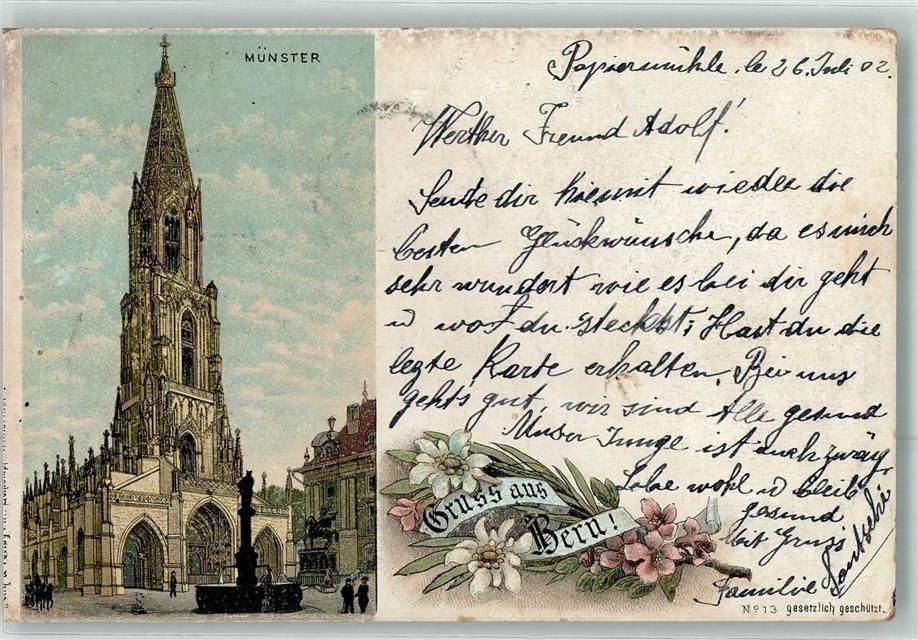 MÜNSTER
Papiermühle, le 26. Juli 02.
Werther Freund Adolf!
Sende dir hiemit wieder die
besten Glückwünsche, da es mich
sehr wundert wie es bei dir geht
u wo du steckst; Hast du die
legte Karte erhalten. Bei uns
gehts gut, wir sind Alle gesund
Unser Junge ist auch zwäg
Lebe wohl u bleib
gesund
Mit Gruss
Familie
Gruss aus
Bern!
No 13 gesetzlich geschützt.